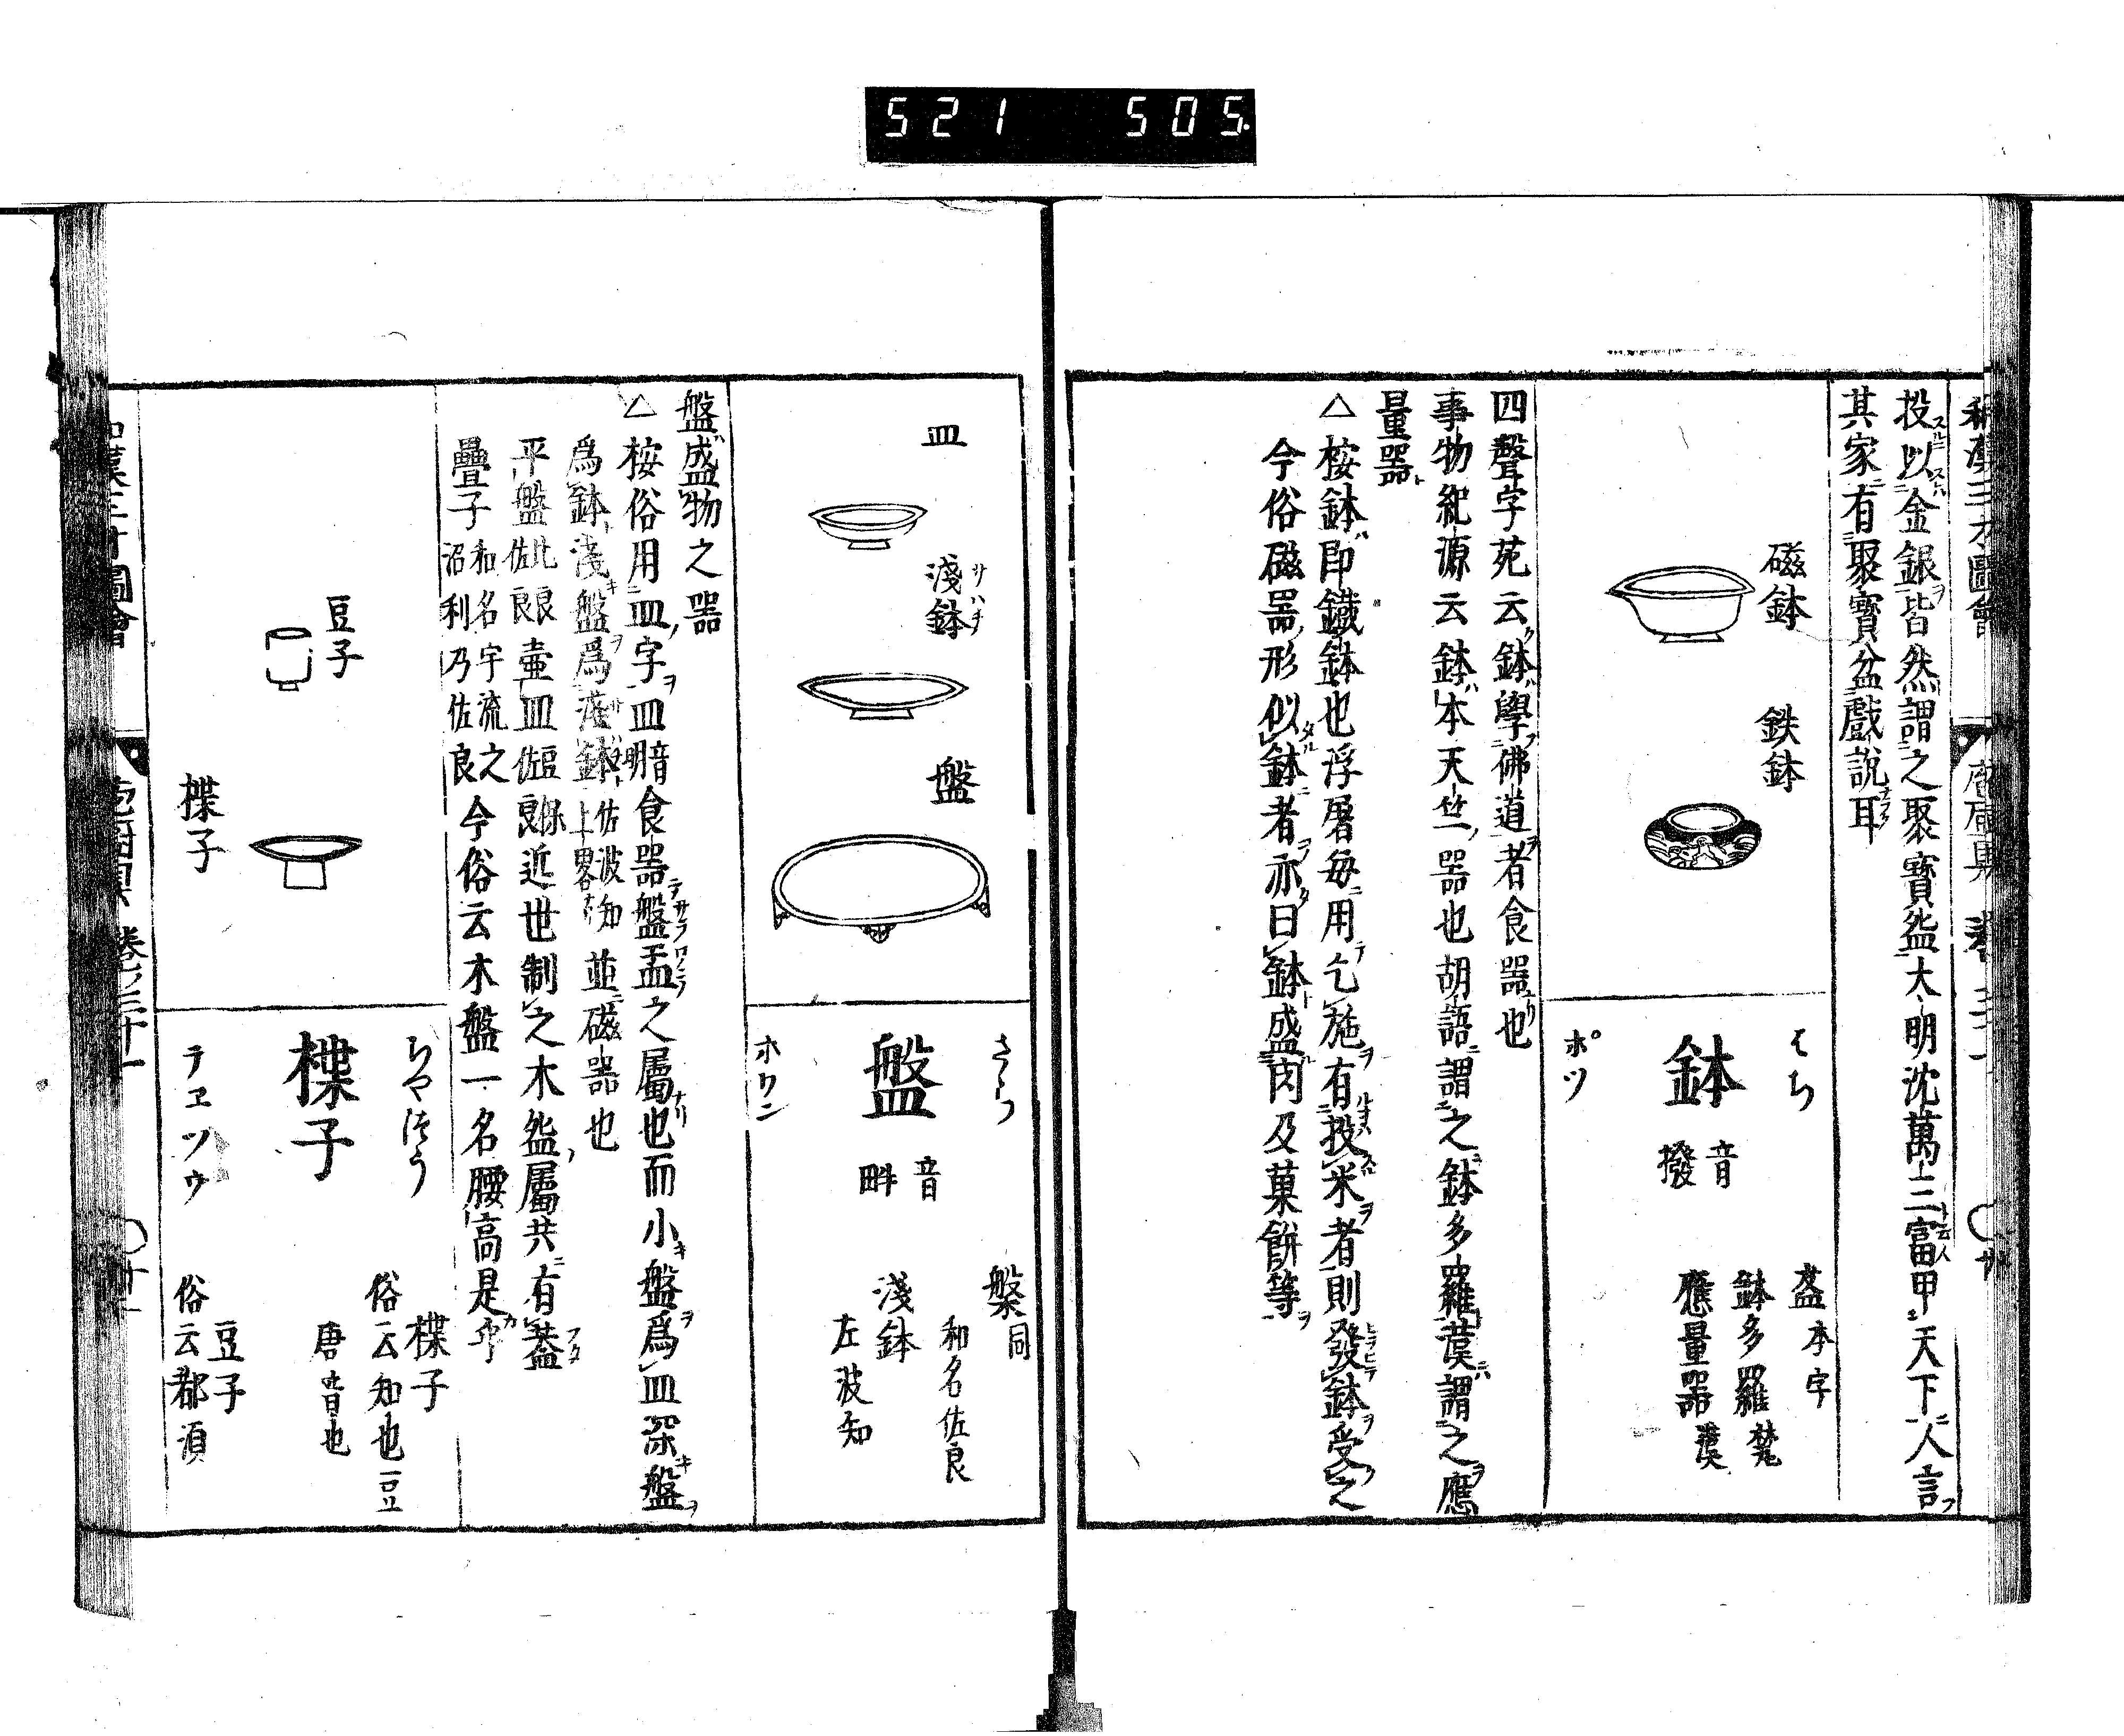 521 505.
投以金銀皆然謂之聚寶盆大明沈萬三富甲天下人言
其家有聚寶盆戲說耳
磁鉢
鉄鉢
はち
鉢
音撥
ポツ
盋 本字
鉢多羅 梵
應量器 漢
四聲字苑云鉢學佛道者食器也
事物紀源云鉢本天竺器也胡語謂之鉢多羅漢謂之應
量器
△桉鉢卽鐵鉢也浮屠每用乞施有投米者則發鉢受之
今俗磁器形似鉢者亦曰鉢盛肉及菓餅等
皿
淺鉢
サハチ
盤
さら
盤
音畔
ホワン
槃同
和名佐良
淺鉢
左波知
盤盛物之器
△桉俗用皿字皿音明食器盤盂之屬也而小盤爲皿深盤
爲鉢淺盤爲淺鉢佐波知上畧 並磁器也
平盤比良佐良壷皿 近世制之木盆屬共有葢
疊子和名宇流之沼利乃佐良今俗云木盤一名腰高是乎
豆子
楪子
ちやつう
楪子
テヱツウ
楪子
俗云知也豆
唐音也
豆子
俗云都湏
和漢三才圖會 庖厨具 卷之三十一